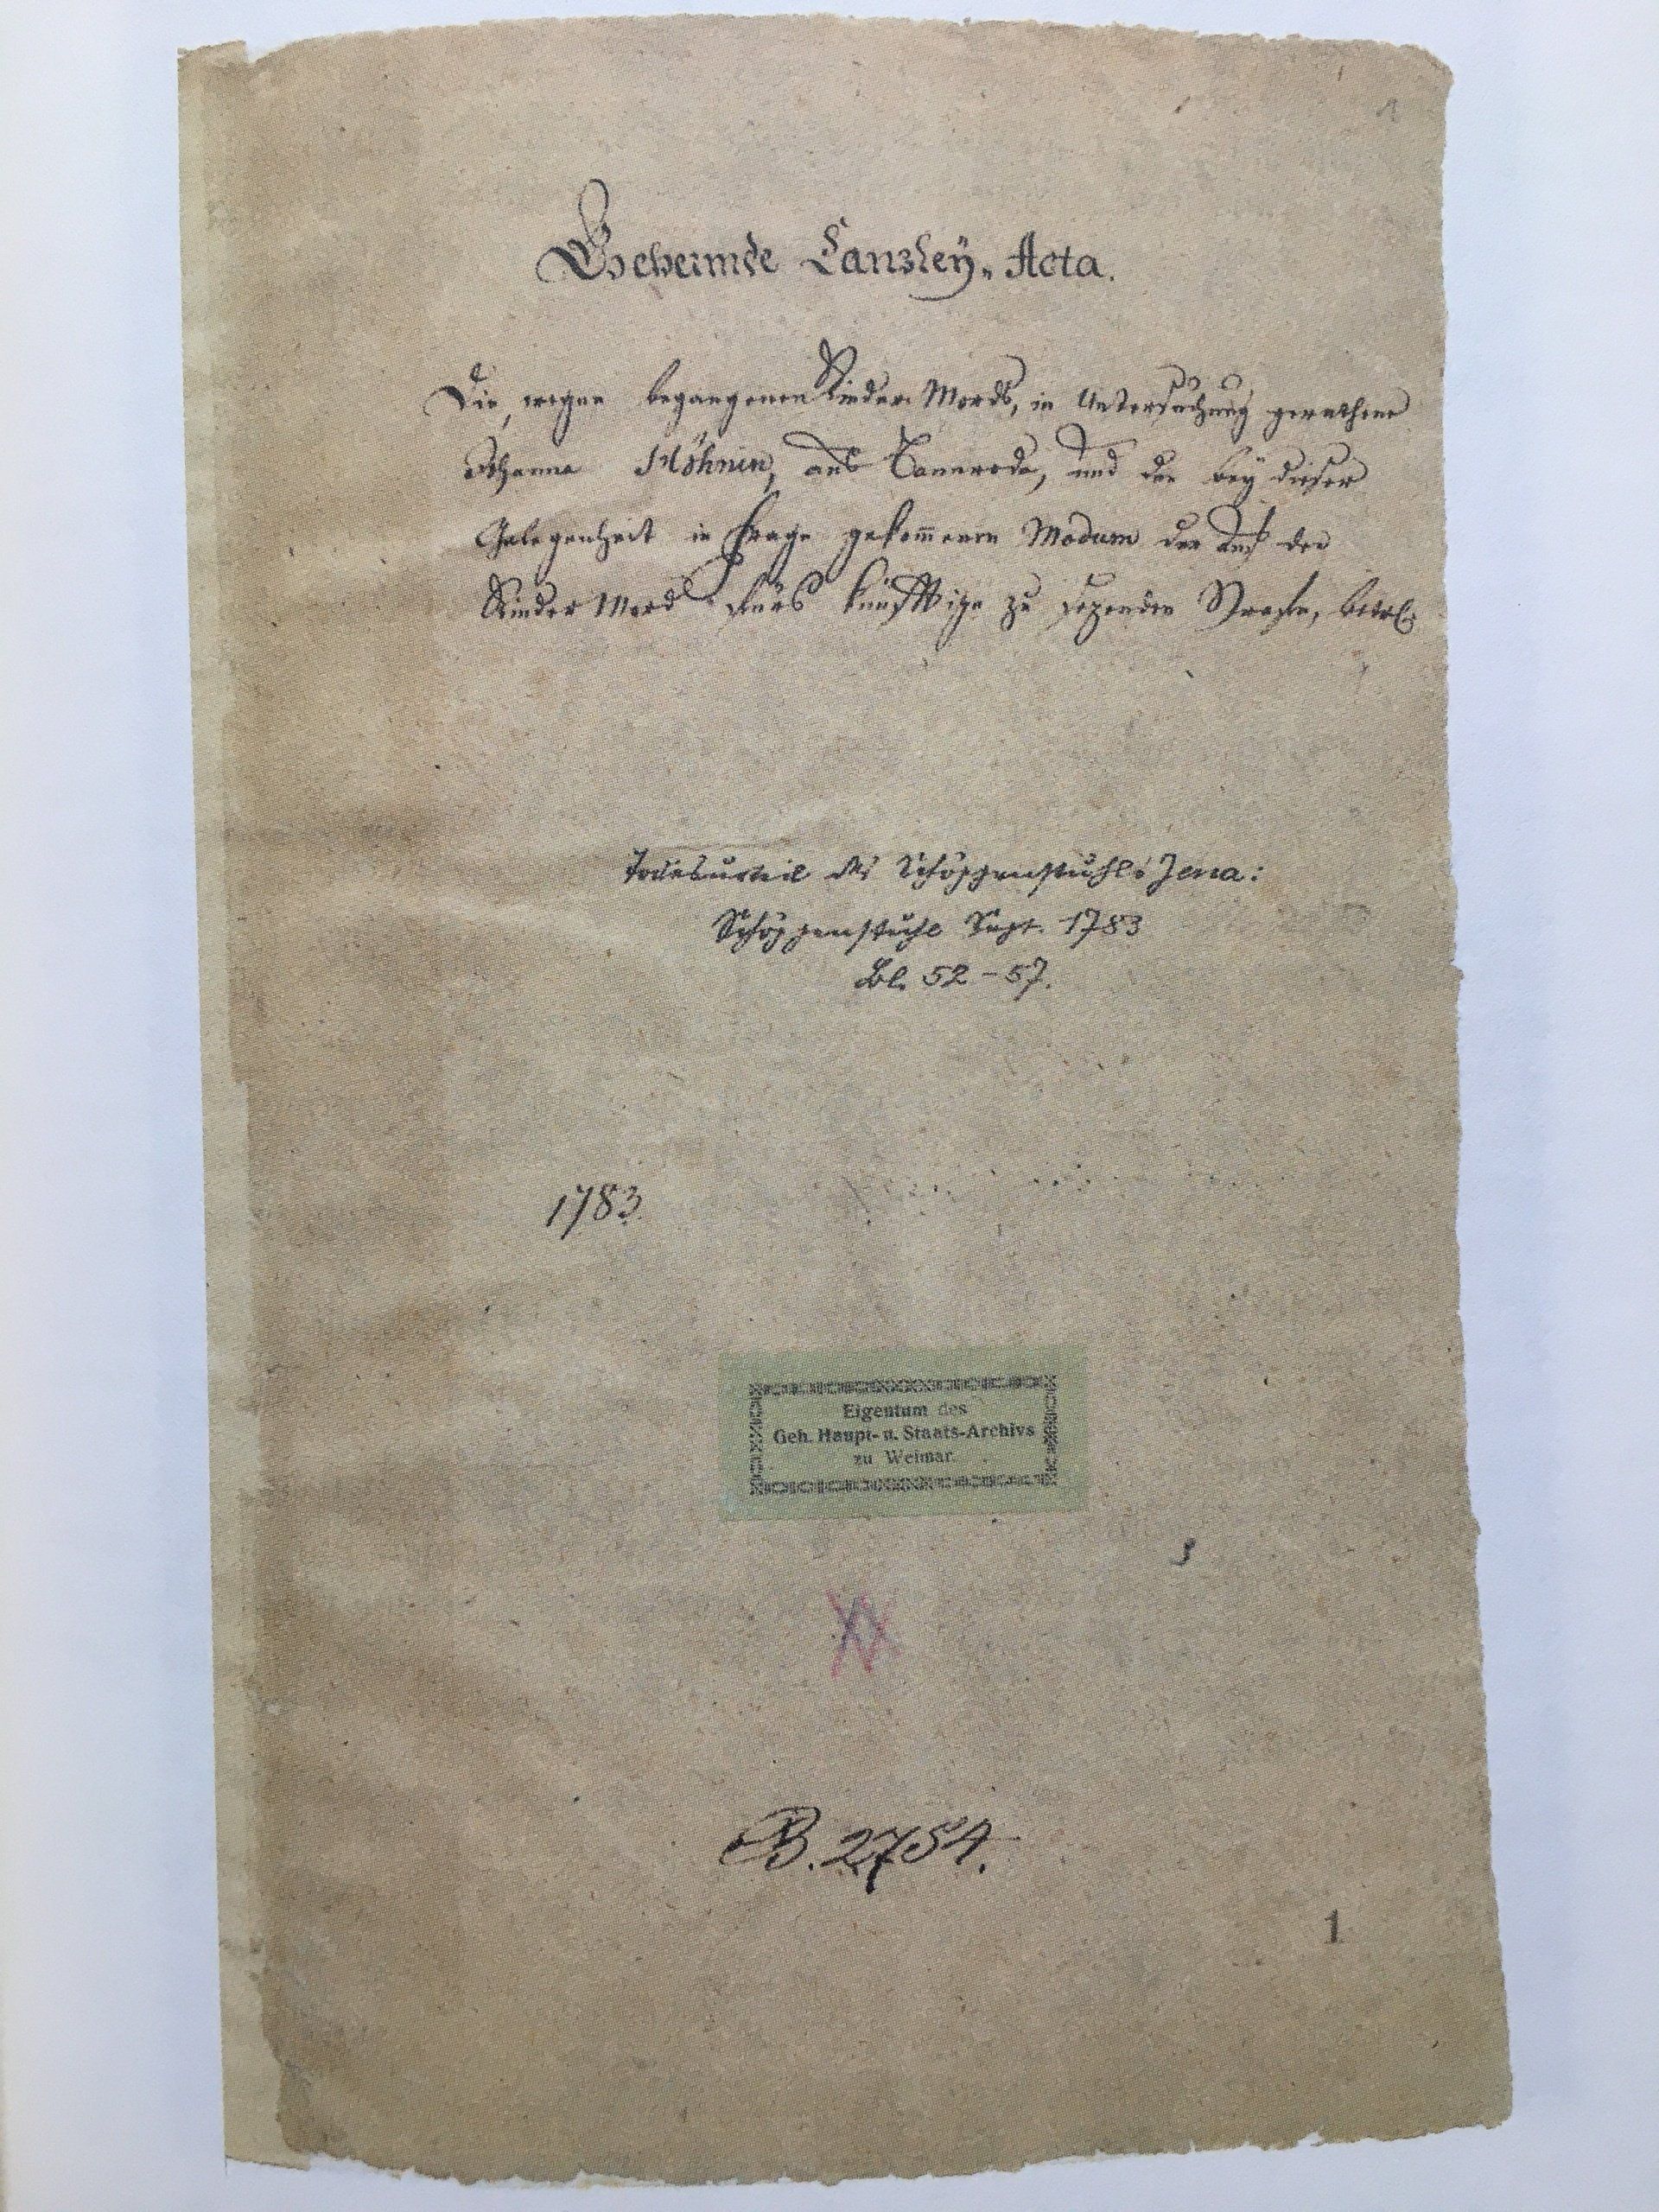 Geheimde Canzley-Acta.
Die, wegen begangenen Kinder-Mords, in Untersuchung gerathene
Johanna Höhnin, aus Tannroda, und den bey dieser
Gelegenheit in Frage gekom̅enen Modum der auf den
Kinder Mord fürs künfftige zu sezenden Strafe, betr.
Todesurteil des Schöppenstuhls Jena:
Schöppenstuhl Sept. 1783
Bl. 52-57.
1783
Eigentum des
Geh. Haupt- u. Staats-Archivs
zu Weimar.
B. 2754.
1